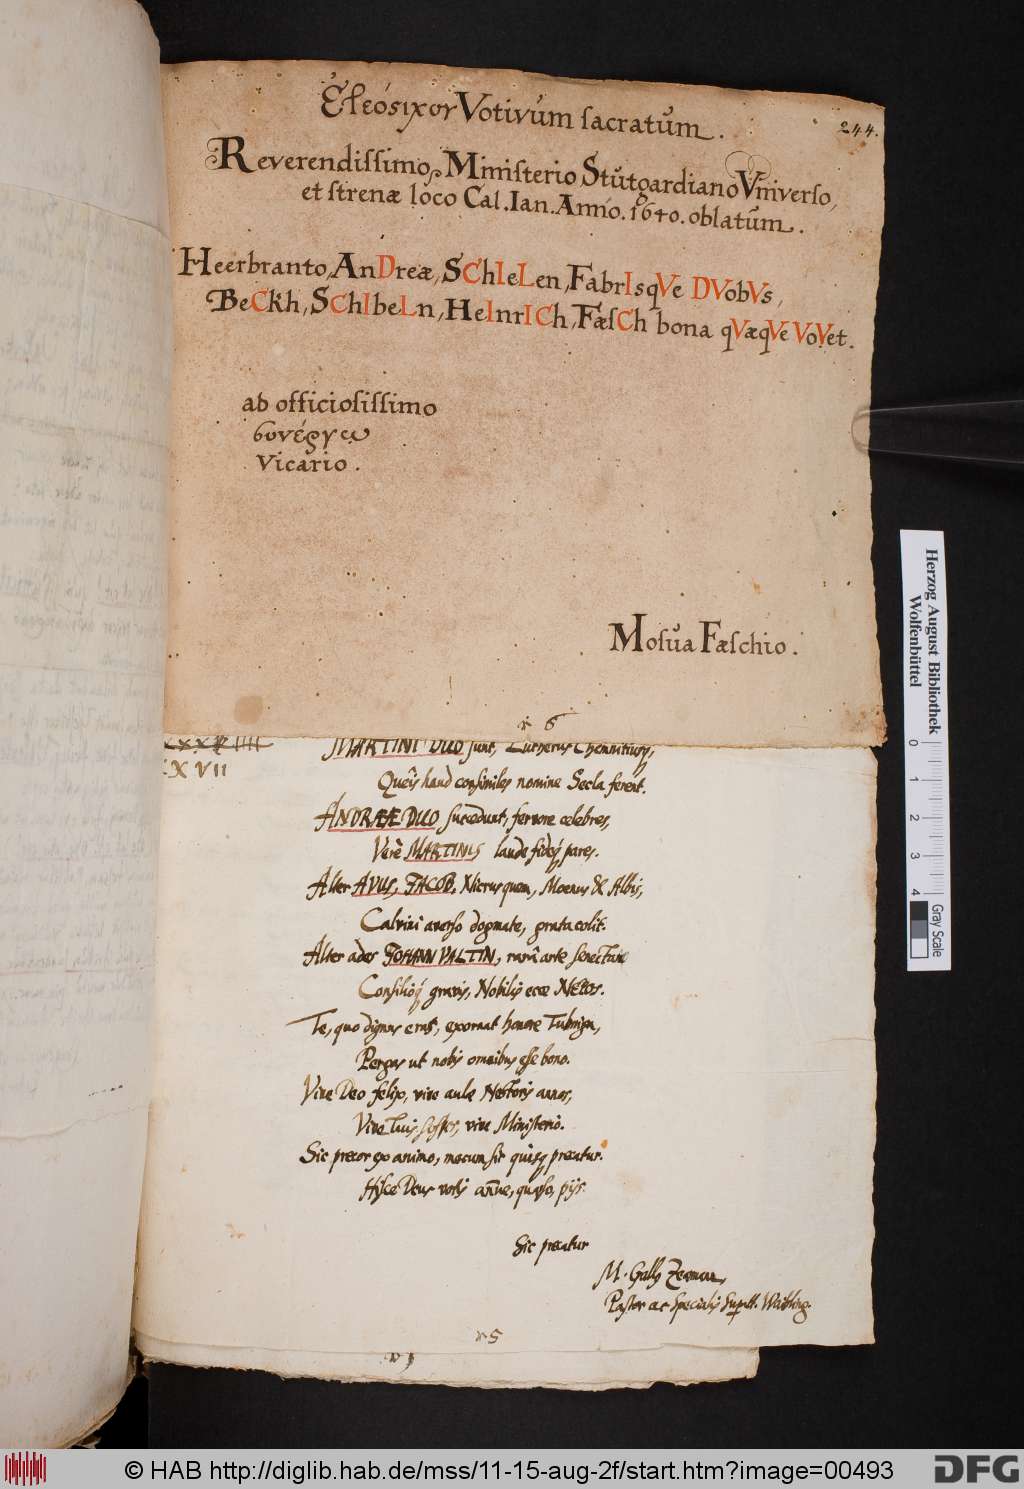 Ἐτεόστιχον Votivum sacratum.
244.
Reverendissimo Ministerio Stutgardiano Vniverso,
et strenæ loco Cal. Ian. Anno. 1640. oblatum.
Heerbranto, AnDreæ, SChIeLen, FabrIsqVe DVobVs,
BeCkh, SChIbeLn, HeInrICh, FæsCh bona qVæqVe VoVet.
ab officiosissimo
συνέργῳ
Vicario.
Mosua Fæschio.
6
XVII
MARTINI DUO sunt, Lutherus Chemnitiusq,
Queîs haud consimiles nomine Secla ferent.
ANDRÆÆ DUO succedunt, fervore celebres,
Verè MARTINIS laude fideq pares.
Alter AVUS, JACOB, Nicrus quem, Moenus & Albis,
Calvini averso dogmate, grata colit.
Alter ades JOHANN VALTIN, rarâ arte senectum
Consilioq gravis, Nobilis ecce Nepos.
Te, quo dignus eras, exornat honore Tubinga,
Pergas ut nobis omnibus esse bono.
Vive Deo felix, vive aulæ Nestoris annos,
Vive Tuis sospes, vive Ministerio.
Sic precor ex animo, mecum sic quisq precatur.
Hisce Deus votis annue, quæso, pijs.
Sic precatur
M. Gallus Zeaman,
Pastor ac Specialis Sup. Waibling.
5
Herzog August Bibliothek
Wolfenbüttel
0 1 2 3 4
Gray Scale
© HAB http://diglib.hab.de/mss/11-15-aug-2f/start.htm?image=00493
DFG